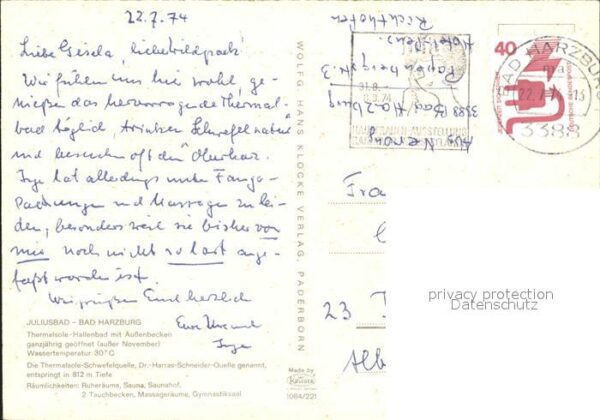 22.7.74
Liebe Gisela, liebe Wildpark!
Wir fühlen uns hier wohl, ge-
nießen das hervorragende Thermal-
bad täglich, trinken Schwefel "natur"
und besuchen oft den Oberharz.
Inge hat allerdings unter Fango-
Packungen und Massagen zu lei-
den, besonders weil sie bisher von
mir noch nicht so hart ange-
faßt worden ist.
Wir grüßen Euch herzlich
Eure
Inge
JULIUSBAD – BAD HARZBURG
Thermalsole-Hallenbad mit Außenbecken
ganzjährig geöffnet (außer November)
Wassertemperatur: 30°C
Die Thermalsole-Schwefelquelle, Dr.-Harras-Schneider-Quelle genannt,
entspringt in 812 m Tiefe
Räumlichkeiten: Ruheräume, Sauna, Saunahof,
2 Tauchbecken, Massageräume, Gymnastiksaal
WOLFG. HANS KLOCKE VERLAG, PADERBORN
Made by
Krüger
1084/221
3388 Bad Harzburg
31.8.-
8.9.74
40
DEUTSCHE BUNDESPOST
BAD HARZBURG
22.7.74-13
3388
Fra
23
Alb
privacy protection
Datenschutz